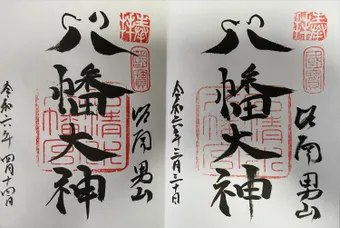 奉拝
国宝
洛南 男山
八幡大神
石清水八幡宮
令和六年 四月十四日
奉拝
国宝
洛南 男山
八幡大神
石清水八幡宮
令和六年三月三十日